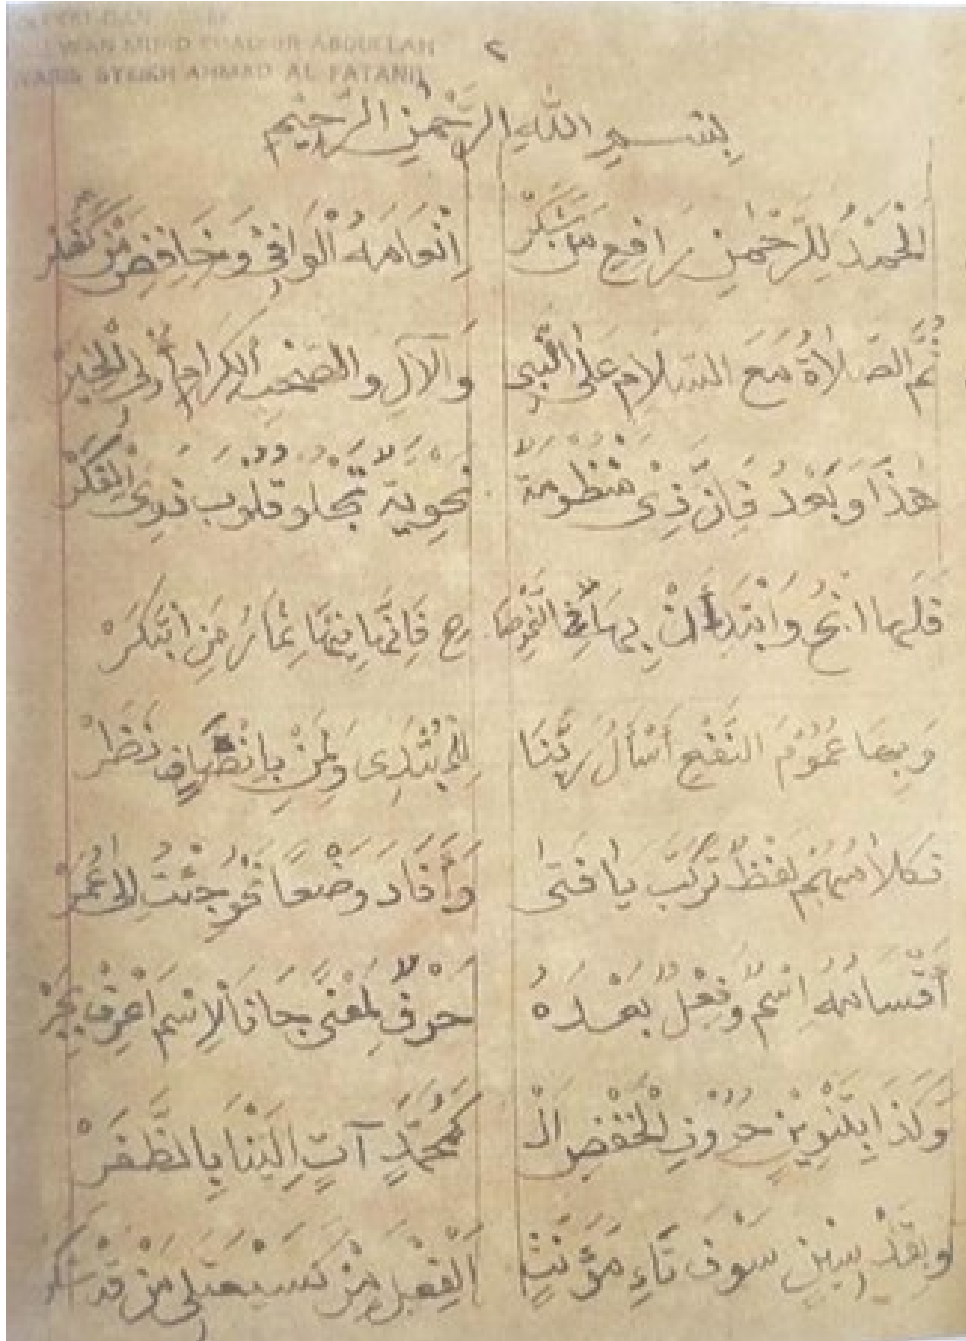 WAN MUHD SHAGHIR ABDULLAH
WARIS SYEIKH AHMAD AL FATANI
٢
بِسْمِ اللّٰهِ الرَّحْمٰنِ الرَّحِيْمِ
اَلْحَمْدُ لِلرَّحْمٰنِ رَافِعِ مَنْ شَكَرْ اِنْعَامَهُ الْوَافِيْ وَخَافِضِ مَنْ كَفَرْ
ثُمَّ الصَّلَاةُ مَعَ السَّلَامِ عَلَى النَّبِيِّ وَالْآلِ وَالصَّحْبِ الْكِرَامِ أُولِى الْخِيَرْ
هٰذَا وَبَعْدُ فَإِنَّ ذِيْ مَنْظُوْمَةٌ نَحْوِيَةٌ تَجْلُوْ قُلُوْبَ ذَوِى الْفِكَرْ
فَلَهَا انْحُ وَابْتَدِأَنْ بِهَا فِي النَّحْوِ صَا حِ فَإِنَّهَا فِيْهَا ثِمَارُ مَنِ ابْتَكَرْ
وَبِهَا عُمُوْمَ النَّفْعِ أَسْأَلُ رَبَّنَا لِلْمُبْتَدِى وَلِمَنْ بِإِنْصَافٍ نَظَرْ
فَكَلَامُهُمْ لَفْظٌ تَرَكَّبَ يَا فَتٰى وَأَفَادَ وَضْعًا نَحْوُ جِئْتُ إِلَى عُمَرْ
أَقْسَامُهُ اِسْمٌ وَفِعْلٌ بَعْدَهُ حَرْفٌ لِمَعْنًى جَا فَالْاِسْمَ اعْرِفْ بِجَرْ
وَكَذَا بِتَنْوِيْنٍ حُرُوْفِ الْخَفْضِ الْـ كَمُحَمَّدٍ آتٍ إِلَيْنَا بِالظَّفَرْ
وَبِقَدْ وَسِيْنٍ سَوْفَ تَاءِ مُؤَنَّثٍ اَلْفِعْلَ مِزْ كَسَيَعْتَلِى مَنْ قَدْ شَكَرْ